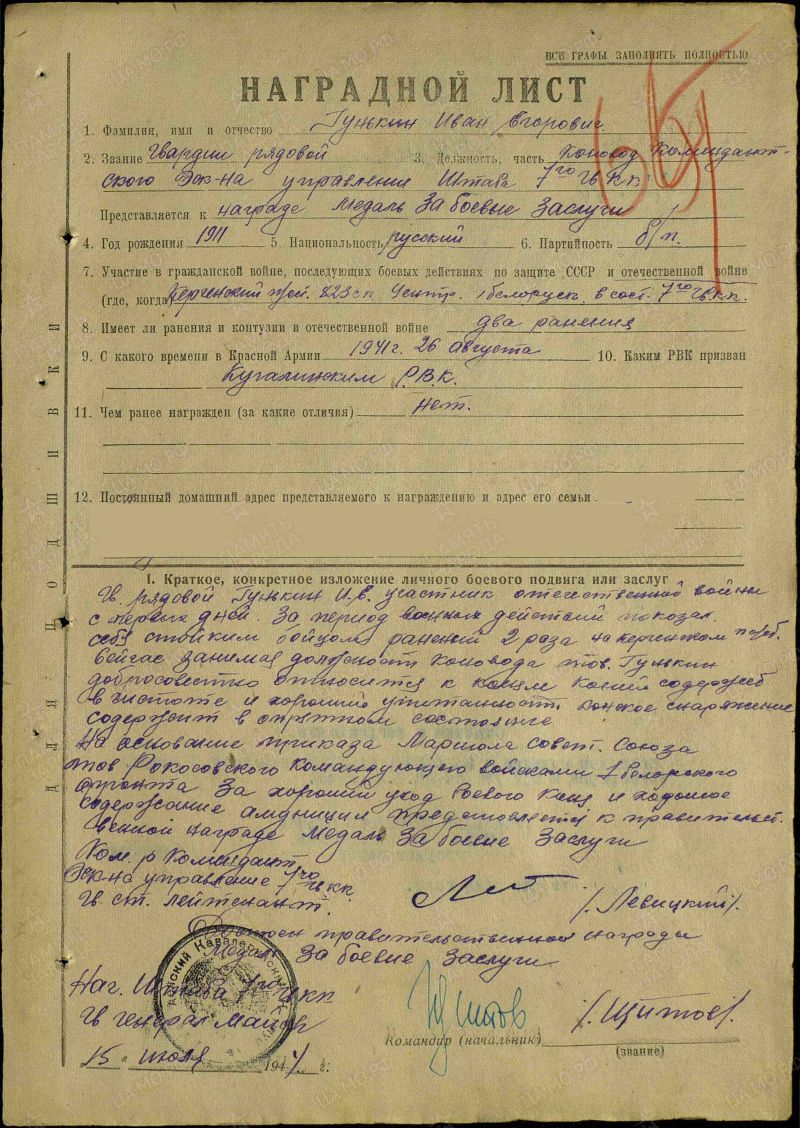 ВСЕ ГРАФЫ ЗАПОЛНЯТЬ ПОЛНОСТЬЮ
НАГРАДНОЙ ЛИСТ
1. Фамилия, имя и отчество Гунькин Иван Егорович
2. Звание Гвардии рядовой 3. Должность, часть Коновод Комендант-
ского Эск-на управления Штаба 7го Гв КК
Представляется к награде Медаль За боевые Заслуги
4. Год рождения 1911 5. Национальность русский 6. Партийность б/п.
7. Участие в гражданской войне, последующих боевых действиях по защите СССР и отечественной войне
(где, когда) Керченский 823 сп Центр. 1 белорусск. в сост. 7го Гв КК.
8. Имеет ли ранения и контузии в отечественной войне два ранения
9. С какого времени в Красной Армии 1941 г. 26 августа 10. Каким РВК призван
Кугалинским Р.В.К.
11. Чем ранее награжден (за какие отличия) нет.
12. Постоянный домашний адрес представляемого к награждению и адрес его семьи.
ДЛЯ ПОДШИВКИ
I. Краткое, конкретное изложение личного боевого подвига или заслуг
Гв. рядовой Гунькин И.Е. участник отечественной войны
с первых дней. За период военных действий показал
себя стойким бойцом ранений 2 раза на керченском
Сейчас занимая должность коновода тов. Гунькин
добросовестно относится к коням Коней содержит
в чистоте и хорошей упитанности конское снаряжение
содержит в опрятном состояние
На основание приказа Маршола Совет. Союза
тов Рокосовского Командующего войсками 1 белорского
фронта За хороший уход боевого Коня и хорошое
содержание амуниции предсповляется к правительст.
венной награде Медаль За боевые Заслуги
Ком-р Комендант.
Эск-на управление 7го Гв КК.
Гв. ст. лейтенант. /. Левицкий/.
Достоен правительственной награды
Медаль За боевие Заслуги
Нач. Штаба 7го Гв КК
Гв генерал Майор /. Щитов/.
Командир (начальник)
(звание)
15 июля 1944 г.